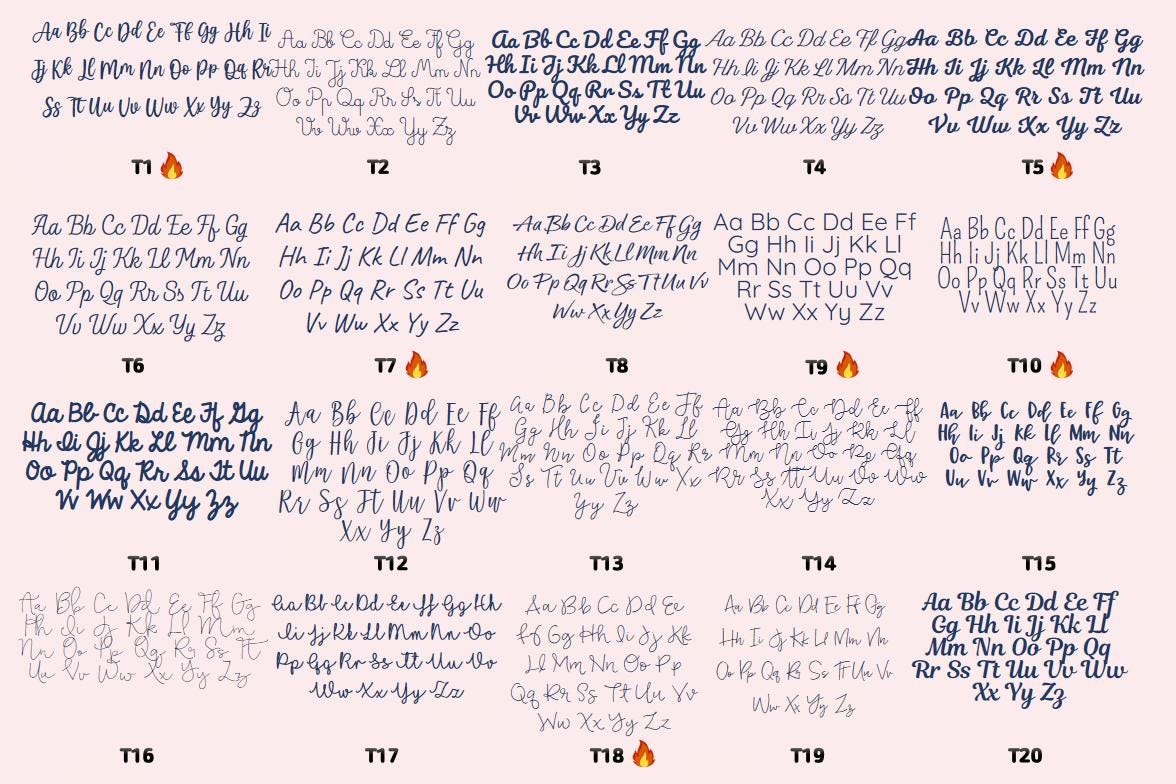 Aa Bb Cc Dd Ee Ff Gg Hh Ii
Jj Kk Ll Mm Nn Oo Pp Qq Rr
Ss Tt Uu Vv Ww Xx Yy Zz
T1🔥
Aa Bb Cc Dd Ee Ff Gg
Hh Ii Jj Kk Ll Mm Nn
Oo Pp Qq Rr Ss Tt Uu
Vv Ww Xx Yy Zz
T2
Aa Bb Cc Dd Ee Ff Gg
Hh Ii Jj Kk Ll Mm Nn
Oo Pp Qq Rr Ss Tt Uu
Vv Ww Xx Yy Zz
T3
Aa Bb Cc Dd Ee Ff Gg
Hh Ii Jj Kk Ll Mm Nn
Oo Pp Qq Rr Ss Tt Uu
Vv Ww Xx Yy Zz
T4
Aa Bb Cc Dd Ee Ff Gg
Hh Ii Jj Kk Ll Mm Nn
Oo Pp Qq Rr Ss Tt Uu
Vv Ww Xx Yy Zz
T5🔥
Aa Bb Cc Dd Ee Ff Gg
Hh Ii Jj Kk Ll Mm Nn
Oo Pp Qq Rr Ss Tt Uu
Vv Ww Xx Yy Zz
T6
Aa Bb Cc Dd Ee Ff Gg
Hh Ii Jj Kk Ll Mm Nn
Oo Pp Qq Rr Ss Tt Uu
Vv Ww Xx Yy Zz
T7🔥
Aa Bb Cc Dd Ee Ff Gg
Hh Ii Jj Kk Ll Mm Nn
Oo Pp Qq Rr Ss Tt Uu Vv
Ww Xx Yy Zz
T8
Aa Bb Cc Dd Ee Ff
Gg Hh Ii Jj Kk Ll
Mm Nn Oo Pp Qq
Rr Ss Tt Uu Vv
Ww Xx Yy Zz
T9🔥
Aa Bb Cc Dd Ee Ff Gg
Hh Ii Jj Kk Ll Mm Nn
Oo Pp Qq Rr Ss Tt Uu
Vv Ww Xx Yy Zz
T10🔥
Aa Bb Cc Dd Ee Ff Gg
Hh Ii Jj Kk Ll Mm Nn
Oo Pp Qq Rr Ss Tt Uu
Vv Ww Xx Yy Zz
T11
Aa Bb Cc Dd Ee Ff
Gg Hh Ii Jj Kk Ll
Mm Nn Oo Pp Qq
Rr Ss Tt Uu Vv Ww
Xx Yy Zz
T12
Aa Bb Cc Dd Ee Ff
Gg Hh Ii Jj Kk Ll
Mm Nn Oo Pp Qq Rr
Ss Tt Uu Vv Ww Xx
Yy Zz
T13
Aa Bb Cc Dd Ee Ff
Gg Hh Ii Jj Kk Ll
Mm Nn Oo Pp Qq
Rr Ss Tt Uu Vv Ww
Xx Yy Zz
T14
Aa Bb Cc Dd Ee Ff Gg
Hh Ii Jj Kk Ll Mm Nn
Oo Pp Qq Rr Ss Tt
Uu Vv Ww Xx Yy Zz
T15
Aa Bb Cc Dd Ee Ff Gg
Hh Ii Jj Kk Ll Mm
Nn Oo Pp Qq Rr Ss Tt
Uu Vv Ww Xx Yy Zz
T16
Aa Bb Cc Dd Ee Ff Gg Hh
Ii Jj Kk Ll Mm Nn Oo
Pp Qq Rr Ss Tt Uu Vv
Ww Xx Yy Zz
T17
Aa Bb Cc Dd Ee
Ff Gg Hh Ii Jj Kk
Ll Mm Nn Oo Pp
Qq Rr Ss Tt Uu Vv
Ww Xx Yy Zz
T18🔥
Aa Bb Cc Dd Ee Ff Gg
Hh Ii Jj Kk Ll Mm Nn
Oo Pp Qq Rr Ss Tt Uu Vv
Ww Xx Yy Zz
T19
Aa Bb Cc Dd Ee Ff
Gg Hh Ii Jj Kk Ll
Mm Nn Oo Pp Qq
Rr Ss Tt Uu Vv Ww
Xx Yy Zz
T20